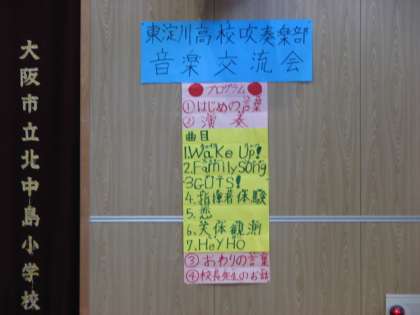 東淀川高校吹奏楽部
音楽交流会
プログラム
①はじめの言葉
②演奏
曲目
1.Wake Up!
2.Family Song
3.GUTS!
4.指揮者体験
5.恋
6.天体観測
7.HEY HO
③おわりの言葉
④校長先生のお話
大阪市立北中島小学校